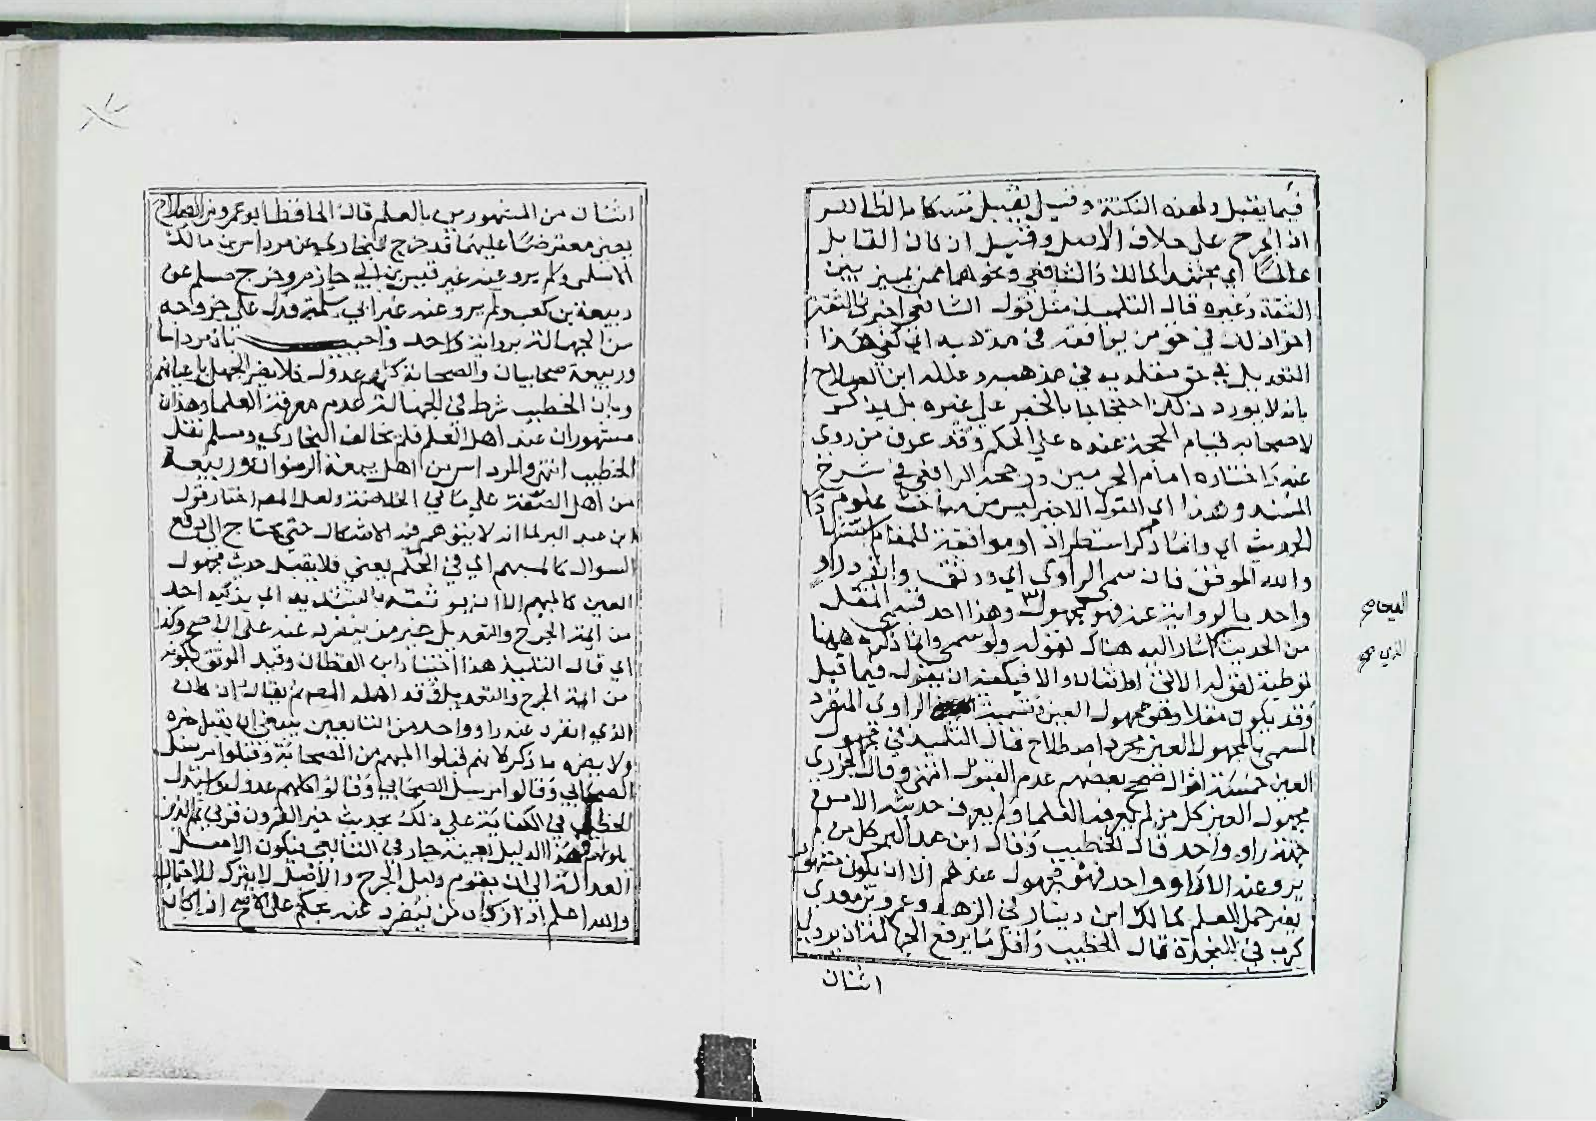 فيما يقبل ولهذه النكتة وقيل يقبل تمسكا بالظاهر
اذ الجرح على خلاف الاصل وقيل ان كان القايل
عالما اي مجتهدا كمالك والشافعي ونحوهما ممن يميز بين
الثقة وغيره قال التلميذ مثل قول الشافعي اخبرني الثقة
اجزاه ذلك في حق من يوافقه في مذهبه اي كفي هذا
التعديل في حق مقلديه في مذهبه وعلله ابن الصلاح
بانه لا يورد ذلك احتجاجا بالخبر على غيره بل يذكر
لاصحابه قيام الحجة عنده علي الحكم وقد عرف من روى
عنه واختاره امام الحرمين ورجحه الرافعي في شرح
المسند وهذا اي القول الاخير ليس من مباحث علوم
الحديث اي وانما ذكر استطرادا وموافقة للمقام
والله الموفق فان سمي الراوي اي وثق وانفرد راو
واحد بالرواية عنه فهو مجهول وهذا احد قسمي المقل
من الحديث كما اشار اليه هناك بقوله ولو سمي وانما ذكره ههنا
توطية لقوله الاتي او اثنان والا فيكفيه ان يقوله فيما قبل
وقد يكون مقلا وهو مجهول العين وتسمية الراوي المنفرد
المسمي بالمجهول العين مجرد اصطلاح قال التلميذ في مجهول
العين خمسة اقوال صحح بعضهم عدم القبول انتهى وقال الجزري
مجهول العين كل من لم يعرفه العلما ولم يعرف حديثه الا من
جهة راو واحد قاله الخطيب وقال ابن عبد البر كل من لم
يرو عنه الا راو واحد فهو مجهول عندهم الا ان يكون مشهورا
بغير حمل العلم كمالك ابن دينار في الزهد وعمرو بن معدي
كرب في النجدة قال الخطيب واقل ما يرفع الجهالة ان يروي
اثنان
اثنان من المشهورين بالعلم قال الحافظ ابو عمرو بن الصلاح
معترضا عليهما قد خرج البخاري عن مرداس بن مالك
الاسلمي ولم يرو عنه غير قيس بن ابي حازم وخرج مسلم عن
ربيعة بن كعب ولم يرو عنه غير ابي سلمة ودل على خروجه
من الجهالة برواية واحد واجيب بان مرداسا
وربيعة صحابيان والصحابة كلهم عدول فلا يضر الجهل باعيانهم
وبان الخطيب شرط في الجهالة عدم معرفة العلما وهذان
مشهوران عند اهل العلم فلم يخالف البخاري ومسلم نقل
الخطيب انتهى والمرداس من اهل بيعة الرضوان وربيعة
من اهل الصفة علي ما في الخلاصة ولعل المص اختار قول
ابن عبد البر لما انه لا يتوهم فيه الاشكال حتى يحتاج الي دفع
السوال كالمبهم اي في الحكم يعني فلا يقبل حديث مجهول
العين كالمبهم الا ان يوثقه بالتشديد اي يزكيه احد
من ايمة الجرح والتعديل غير من ينفرد عنه على الاصح وكذا
اي قال التلميذ هذا اختيار ابن القطان وقيد الموثق بكونه
من ايمة الجرح والتعديل وقد اهمله المصم يقال ان كان
الذي انفرد عنه راو واحد من التابعين ينبغي ان يقبل خبره
ولا يضره ما ذكر لانهم قبلوا المبهم من الصحابة وقبلوا مرسل
الصحابي وقالوا مرسل الصحابي وقالوا كلهم عدول واستدل
الخطيب في الكفاية على ذلك بحديث خير القرون قرني ثم الذين
يلونهم وهذا الدليل بعينه جار في التابعي فيكون الاصل
العدالة الي ان يقوم دليل الجرح والاصل لا يترك للاحتمال
والله اعلم اذ كان من ينفرد عنه يحكم على الاصح اذا كان